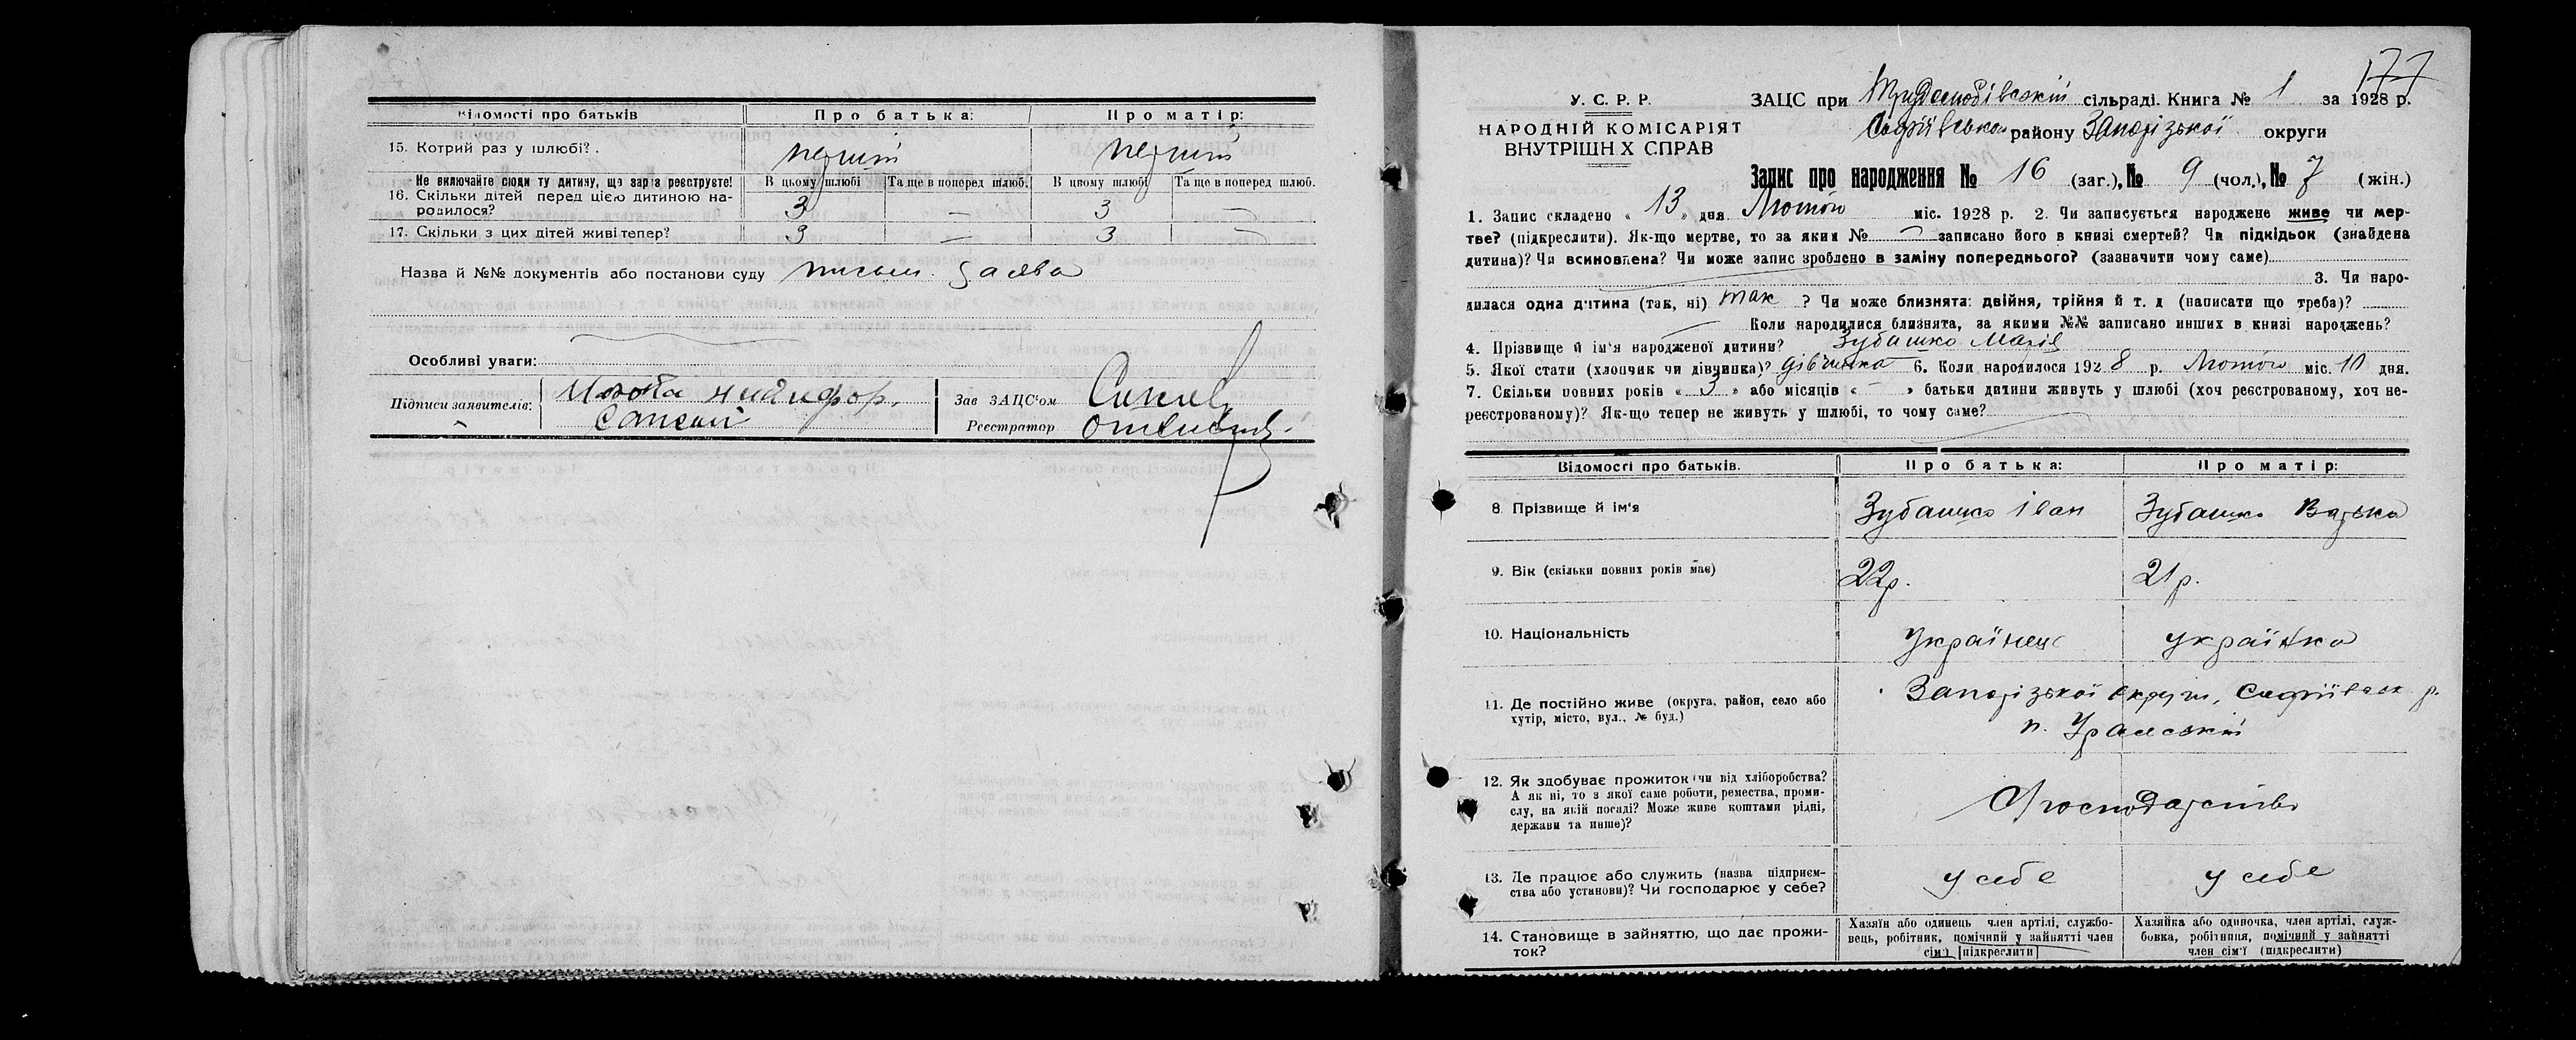 Відомості про батьків
Про батька:
Про матір:
15. Котрий раз у шлюбі?.
перший
перший
Не включайте сюди ту дитину, що зараз реєструєте!
В цьому шлюбі
Та ще в поперед шлюб.
В цьому шлюбі
Та ще в поперед шлюб.
16. Скільки дітей перед цією дитиною на-
родилося?
3
—
3
—
17. Скільки з цих дітей живі тепер?
3
—
3
—
Назва й №№ документів або постанови суду письм. заява
Особливі уваги:
Підписи заявителів:
Зав ЗАЦС'ом
Реєстратор
177
У. С. Р. Р.
НАРОДНІЙ КОМІСАРІЯТ
ВНУТРІШН Х СПРАВ
ЗАЦС при сільраді. Книга № 1 за 1928 р.
Софіївського району Запорізької округи
Запис про народження № 16 (заг.), № 9 (чол.), № 7 (жін.)
1. Запис складено « 13 » дня Лютого міс. 1928 р. 2. Чи записується народжене живе чи мер-
тве? (підкреслити). Як-що мертве, то за яким № — записано його в книзі смертей? Чи підкідьок (знайдена
дитина)? Чи всиновлена? Чи може запис зроблено в заміну попереднього? (зазначити чому саме)
3. Чи наро-
дилася одна дитина (так, ні) так ? Чи може близнята: двійня, трійня й т. д (написати що треба)?
Коли народилися близнята, за якими №№ записано инших в книзі народжень?
4. Прізвище й ім'я народженої дитини? Зубашко Марія
5. Якої стати (хлопчик чи дівчинка)? дівчинка 6. Коли народилося 1928 р. Лютого міс. 10 дня.
7. Скільки повних років « 3 » або місяців « — » батьки дитини живуть у шлюбі (хоч реєстрованому, хоч не-
реєстрованому)? Як-що тепер не живуть у шлюбі, то чому саме?
Відомості про батьків.
Про батька:
Про матір:
8. Прізвище й ім'я
Зубашко Іван
Зубашко Варька
9. Вік (скільки повних років має)
22р.
21р.
10. Національність
Українець
українка
11. Де постійно живе (округа, район, село або
хутір, місто, вул., № буд.)
Запорізької округи, Софіївськ. р.
п.
12. Як здобуває прожиток (чи від хліборобства?
А як ні, то з якої саме роботи, ремества, проми-
слу, на якій посаді? Може живе коштами рідні,
держави та инше)?
господарство
13. Де працює або служить (назва підприєм-
ства або установи)? Чи господарює у себе?
у себе
у себе
14. Становище в зайняттю, що дає прожи-
ток?
Хазяїн або одинець член артілі, службо-
вець, робітник, помічний у зайнятті член
сім'ї [підкреслити]
Хазяйка або одиночка, член артілі, служ-
бовка, робітниця, помічний у зайнятті
член сім'ї (підкреслити)